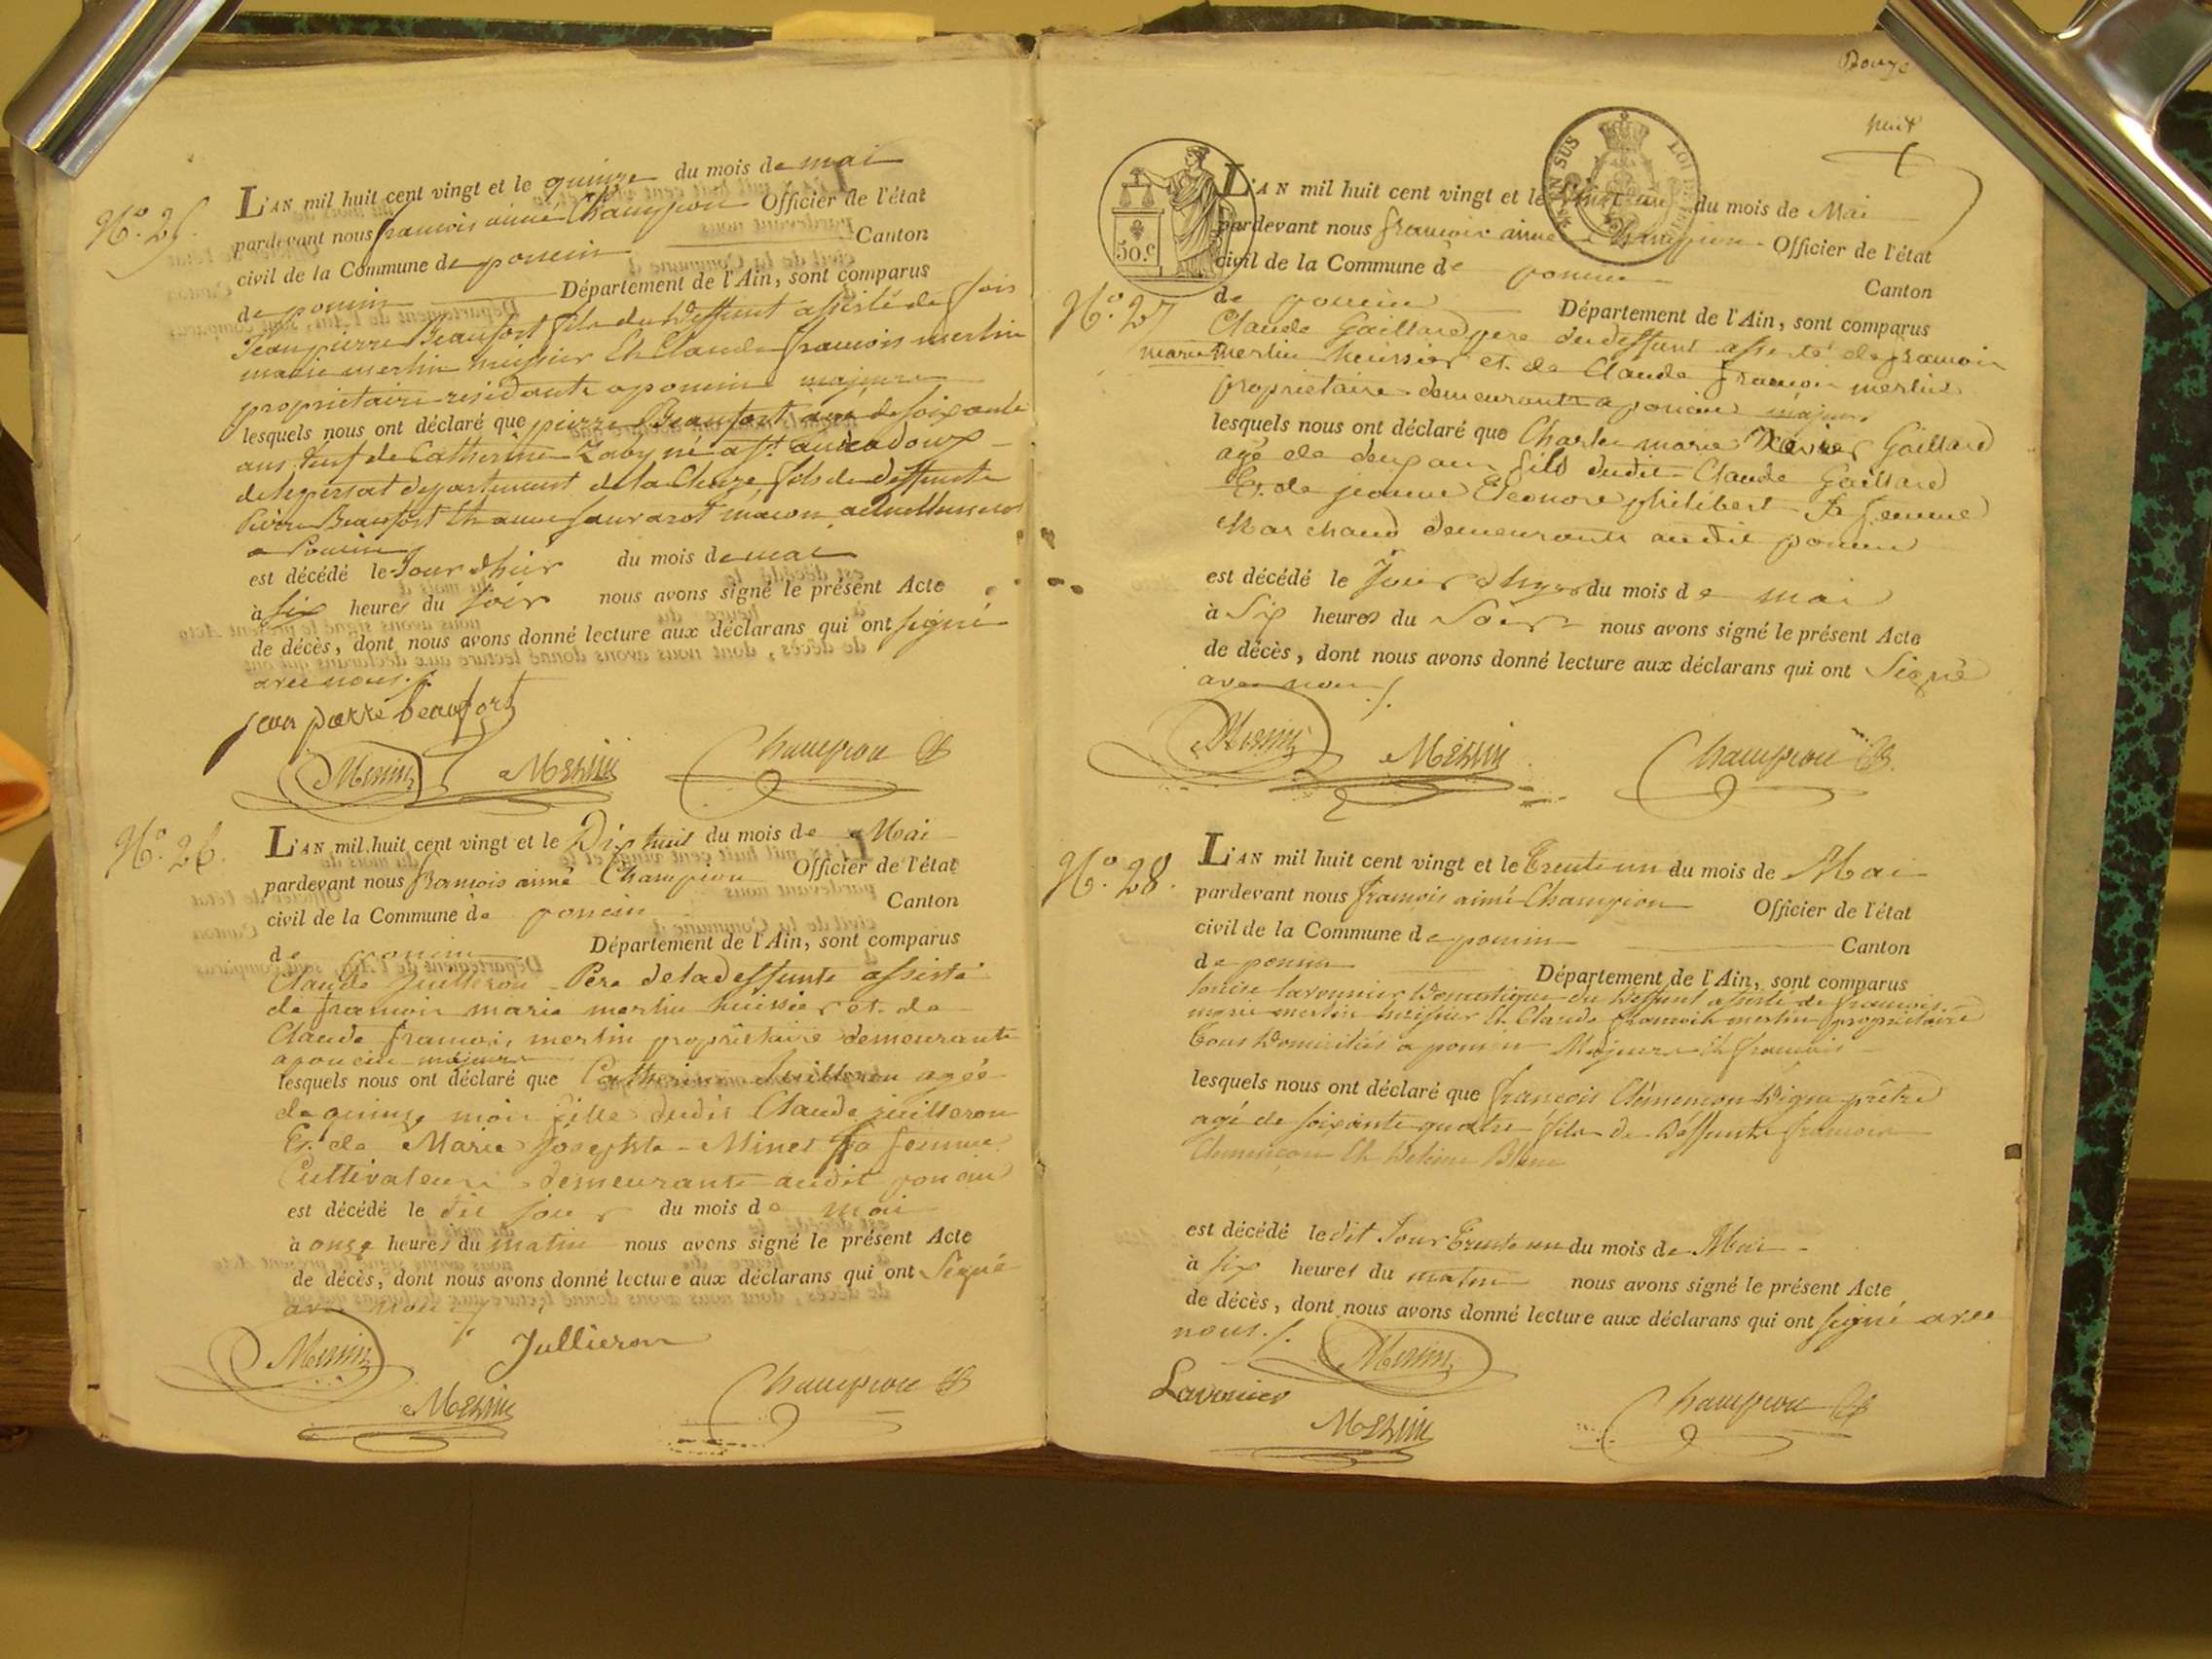 N.o 25.
L'AN mil huit cent vingt et le quinze du mois de mai
pardevant nous francois aimé Champion Officier de l'état
civil de la Commune de poncin Canton
de poncin Département de l'Ain, sont comparus
Jean pierre Beaufort fils du deffunt assisté de fois
marie merlin huissier Et Claude francois merlin
proprietaire residants a poncin majeurs
lesquels nous ont déclaré que pierre Beaufort agé de soixante
ans veuf de Catherine né a st.
departement de la Creuze fils de deffunts
Pierre Beaufort Et anne macon actuellement
a Poncin
est décédé le Jour d'hier du mois de mai
à six heures du soir nous avons signé le présent Acte
de décès, dont nous avons donné lecture aux déclarans qui ont signé
avec nous./.
jean piarre beaufort
Merlin Merlin Champion
N.o 26.
L'AN mil huit cent vingt et le Dix huit du mois de Mai
pardevant nous francois aimé Champion Officier de l'état
civil de la Commune de poncin Canton
de poncin Département de l'Ain, sont comparus
Claude Juilleron Père de la deffunte assisté
de francois marie merlin huissier et de
Claude francois merlin propriétaire demeurants
a poncin majeurs
lesquels nous ont déclaré que Catherine Juilleron agée
de quinze mois fille dudit Claude juilleron
Et de Marie Josephte Minet sa femme
Cultivateurs demeurants audit poncin
est décédé le dit jour du mois de mai
à onze heures du matin nous avons signé le présent Acte
de décès, dont nous avons donné lecture aux déclarans qui ont Signé
avec nous ./.
Merlin Jullieron
Merlin Champion
huit
50.c
N.o 27
L'AN mil huit cent vingt et le vingt un du mois de Mai
pardevant nous francois aimé Champion Officier de l'état
civil de la Commune de poncin
de poncin Canton
Département de l'Ain, sont comparus
Claude Gaillard pere du deffunt assisté de francois
marie Merlin huissier et de Claude francois merlin
propriétaire demeurants a poncin majeurs
lesquels nous ont déclaré que Charles marie Gaillard
agé de deux ans fils dudit Claude Gaillard
Et de jeanne Eleonore philibert sa femme
Marchand demeurants audit poncin
est décédé le Jour d'hyer du mois de mai
à Six heures du Soir nous avons signé le présent Acte
de décès, dont nous avons donné lecture aux déclarans qui ont Signé
avec nous ./.
Merlin Merlin Champion
N.o 28.
L'AN mil huit cent vingt et le trente un du mois de Mai
pardevant nous francois aimé Champion Officier de l'état
civil de la Commune de poncin Canton
de poncin Département de l'Ain, sont comparus
louise lavonnier domestique du deffunt assisté de francois
marie merlin huissier Et Claude francois merlin propriétaire
tous domiciliés a poncin Majeurs et francais
lesquels nous ont déclaré que francois Clémencon prêtre
agé de soixante quatre fils de deffunts francois
Clemencon Et Blanc
est décédé le dit Jour trente un du mois de Mai
à six heures du matin nous avons signé le présent Acte
de décès, dont nous avons donné lecture aux déclarans qui ont signé avec
nous./. Merlin
Lavonier
Merlin Champion